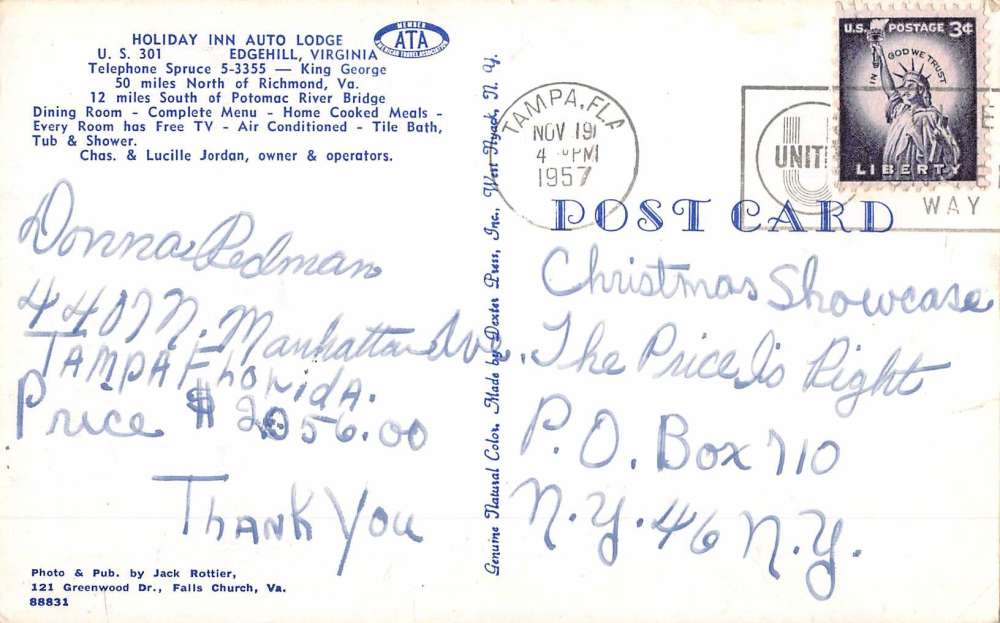 HOLIDAY INN AUTO LODGE
U. S. 301 EDGEHILL, VIRGINIA
Telephone Spruce 5-3355 — King George
50 miles North of Richmond, Va.
12 miles South of Potomac River Bridge
Dining Room - Complete Menu - Home Cooked Meals -
Every Room has Free TV - Air Conditioned - Tile Bath,
Tub & Shower.
Chas. & Lucille Jordan, owner & operators.
MEMBER
ATA
AMERICAN TRAVEL ASSOCIATION
Donna Redman
4407 N. Manhattan Ave.
TAMPA Florida.
Price $ 2056.00
Thank You
Photo & Pub. by Jack Rottier,
121 Greenwood Dr., Falls Church, Va.
88831
Genuine Natural Color. Made by Dexter Press, Inc., West Nyack, N. Y.
TAMPA, FLA
NOV 19
4 PM
1957
UNIT
WAY
U.S. POSTAGE 3¢
IN GOD WE TRUST
LIBERTY
POST CARD
Christmas Showcase
The Price Is Right
P.O. Box 710
N.Y. 46 N.Y.